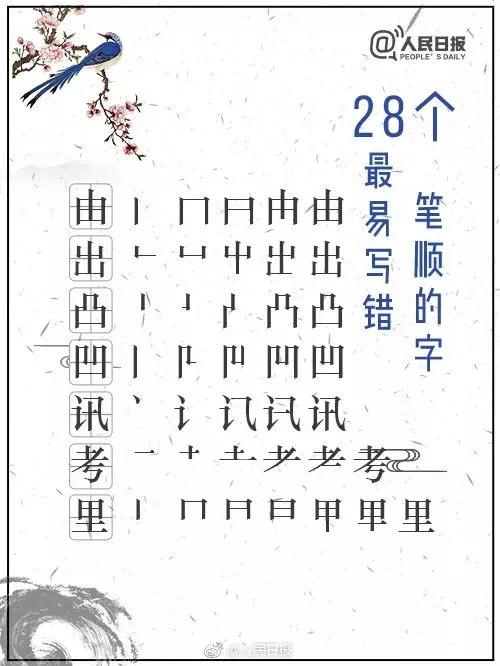 @人民日报
PEOPLE'S DAILY
28个
最易写错
笔顺的字
由 丨 冂 由
出 凵 屮 出
凸 丨 凸
凹 丨 凹
讯 丶 讠 讯
考 一 十 土 耂 考
里 丨 冂 日 甲 里
@人民日报